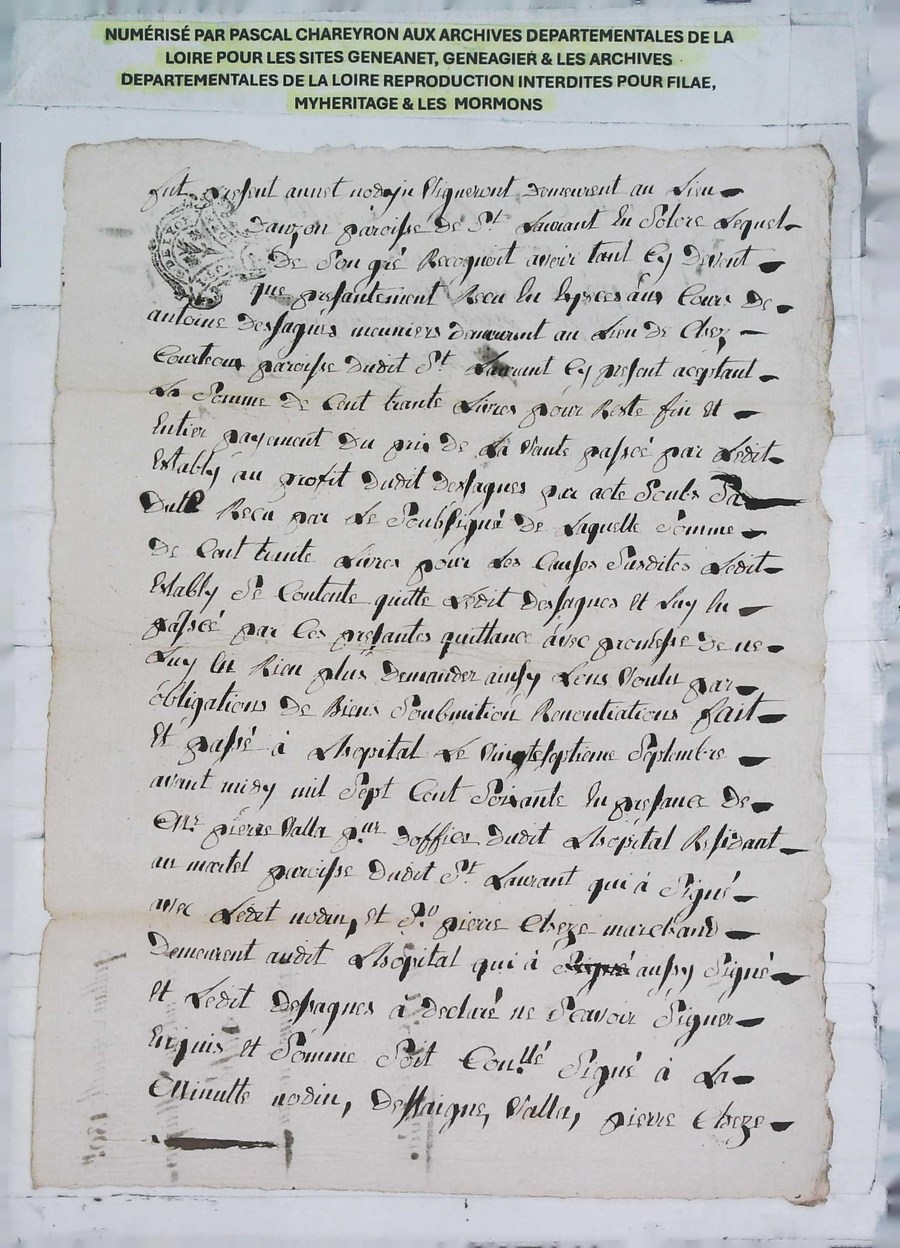 NUMÉRISÉ PAR PASCAL CHAREYRON AUX ARCHIVES DEPARTEMENTALES DE LA
LOIRE POUR LES SITES GENEANET, GENEAGIER & LES ARCHIVES
DEPARTEMENTALES DE LA LOIRE REPRODUCTION INTERDITES POUR FILAE,
MYHERITAGE & LES MORMONS
fut present annet nodin Vigneront demeurent au Lieu
Danzon paroisse de St Laurant En Solore Lequel
De Son gré Recognoit avoir tant Cy Devent
que presantement Receu En Especes aux Cours de
antoine dessagnes meuniers demeurant au Lieu de Chez
Courteon paroisse dudit St Laurant Cy present aceptant
La Somme de Cent trante Livres pour Reste fin Et
Entier payement du prix de La Vante passée par Ledit
Estably au profit dudit dessagnes par acte Soubs Sa
datte Receu par Le Soubsigné de Laquelle Somme
de Cent trante Livres pour Les Causes Susdites Ledit
Estably Se Contente quitte Ledit dessagnes et Luy En
passée par Ces presantes quittance avec promesse de ne
Luy En Rien plus demander ainsy Lons Voulu par
obligations de Biens Soubmition Renontiations fait
Et passé à Lhopital Le Vingtseptieme Septembre
avant midy mil Sept Cent Soixante En presance de
Mr pierre Valla pur doffice dudit Lhopital Residant
au martel paroisse dudit St Laurant qui à Signé
avec Ledit nodin, et Sr pierre Cheze marchand
Demeurent audit Lhopital qui à aussy Signé
et Ledit dessagnes à declaré ne Scavoir Signer
Enquis et Sommé Soit Conllé Signé à La
Minutte nodin, dessaigne, Valla, pierre Cheze